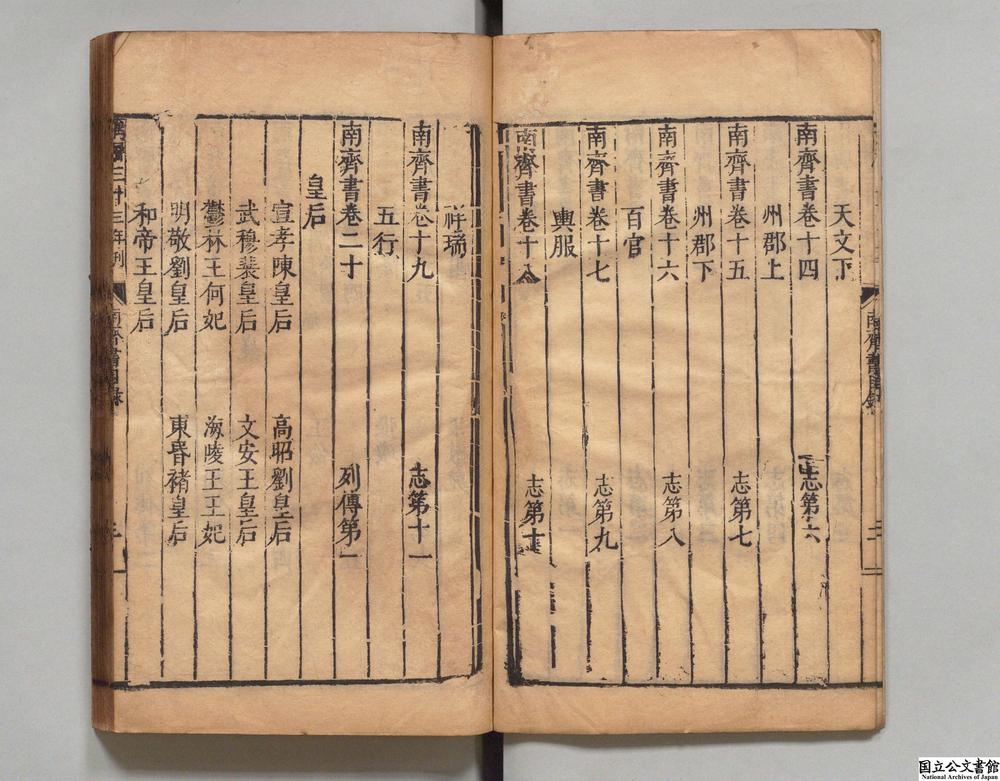 天文下
南齊書卷十四 志第六
州郡上
南齊書卷十五 志第七
州郡下
南齊書卷十六 志第八
百官
南齊書卷十七 志第九
輿服
南齊書卷十八 志第十
祥瑞
南齊書卷十九 志第十一
五行
南齊書卷二十 列傳第一
皇后
宣孝陳皇后 高昭劉皇后
武穆裴皇后 文安王皇后
鬱林王何妃 海陵王王妃
明敬劉皇后 東昏褚皇后
和帝王皇后
南齊書目錄
三
国立公文書館
National Archives of Japan